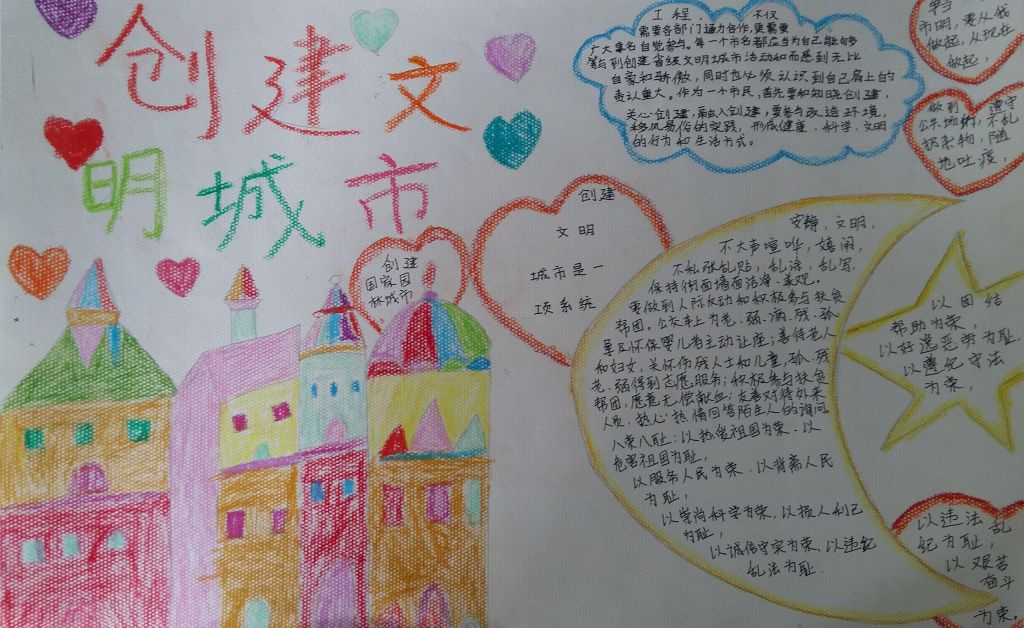 创建文
明城市
创建
国家园
林城市
创建
文明
城市是一
项系统
工程，不仅
需要各部门通力合作，更需要
广大票名自觉参与。每一个市名都应当为自己能够
参与到创建省级文明城市活动和而感到无比
自豪和骄傲，同时也必须认识到自己肩上的
责认重大。作为一个市民，首先要和知晓创建，
关心创建，融入创建，要参与改造环境，
移风易俗的实践，形成健康、科学、文明
的行为和生活方式。
市明，要从我
做起，从现在
做起，
做到 遵守
公共地 ，不乱
扔杂物，随
地吐痰，
安静，文明，
不大声喧哗，嬉闹，
不私张乱贴，乱涂，乱写，
保持街面墙面洁净、美观。
要做到人际反动和积极参与扶贫
帮困。公交车上为老、弱、病、残、孕
及怀保婴儿者主动让座，善待老人
和妇女，关怀伤残人士和儿童，孤、残
老、弱得到志愿服务；积极参与扶贫
帮困，愿意无偿献血；友善对待外来
人员，热心热情回答陌生人的询问。
八荣八耻：以热爱祖国为荣、以
危害祖国为耻，
以服务人民为荣、以背离人民
为耻，
以崇尚科学为荣，以损人利己
为耻，
以诚信守实为荣，以违纪
乱法为耻．
以团结
帮助为荣，
以好逸恶劳为耻，
以遵纪守法
为荣，
以违法乱
纪为耻，
以艰苦
奋斗
为荣。